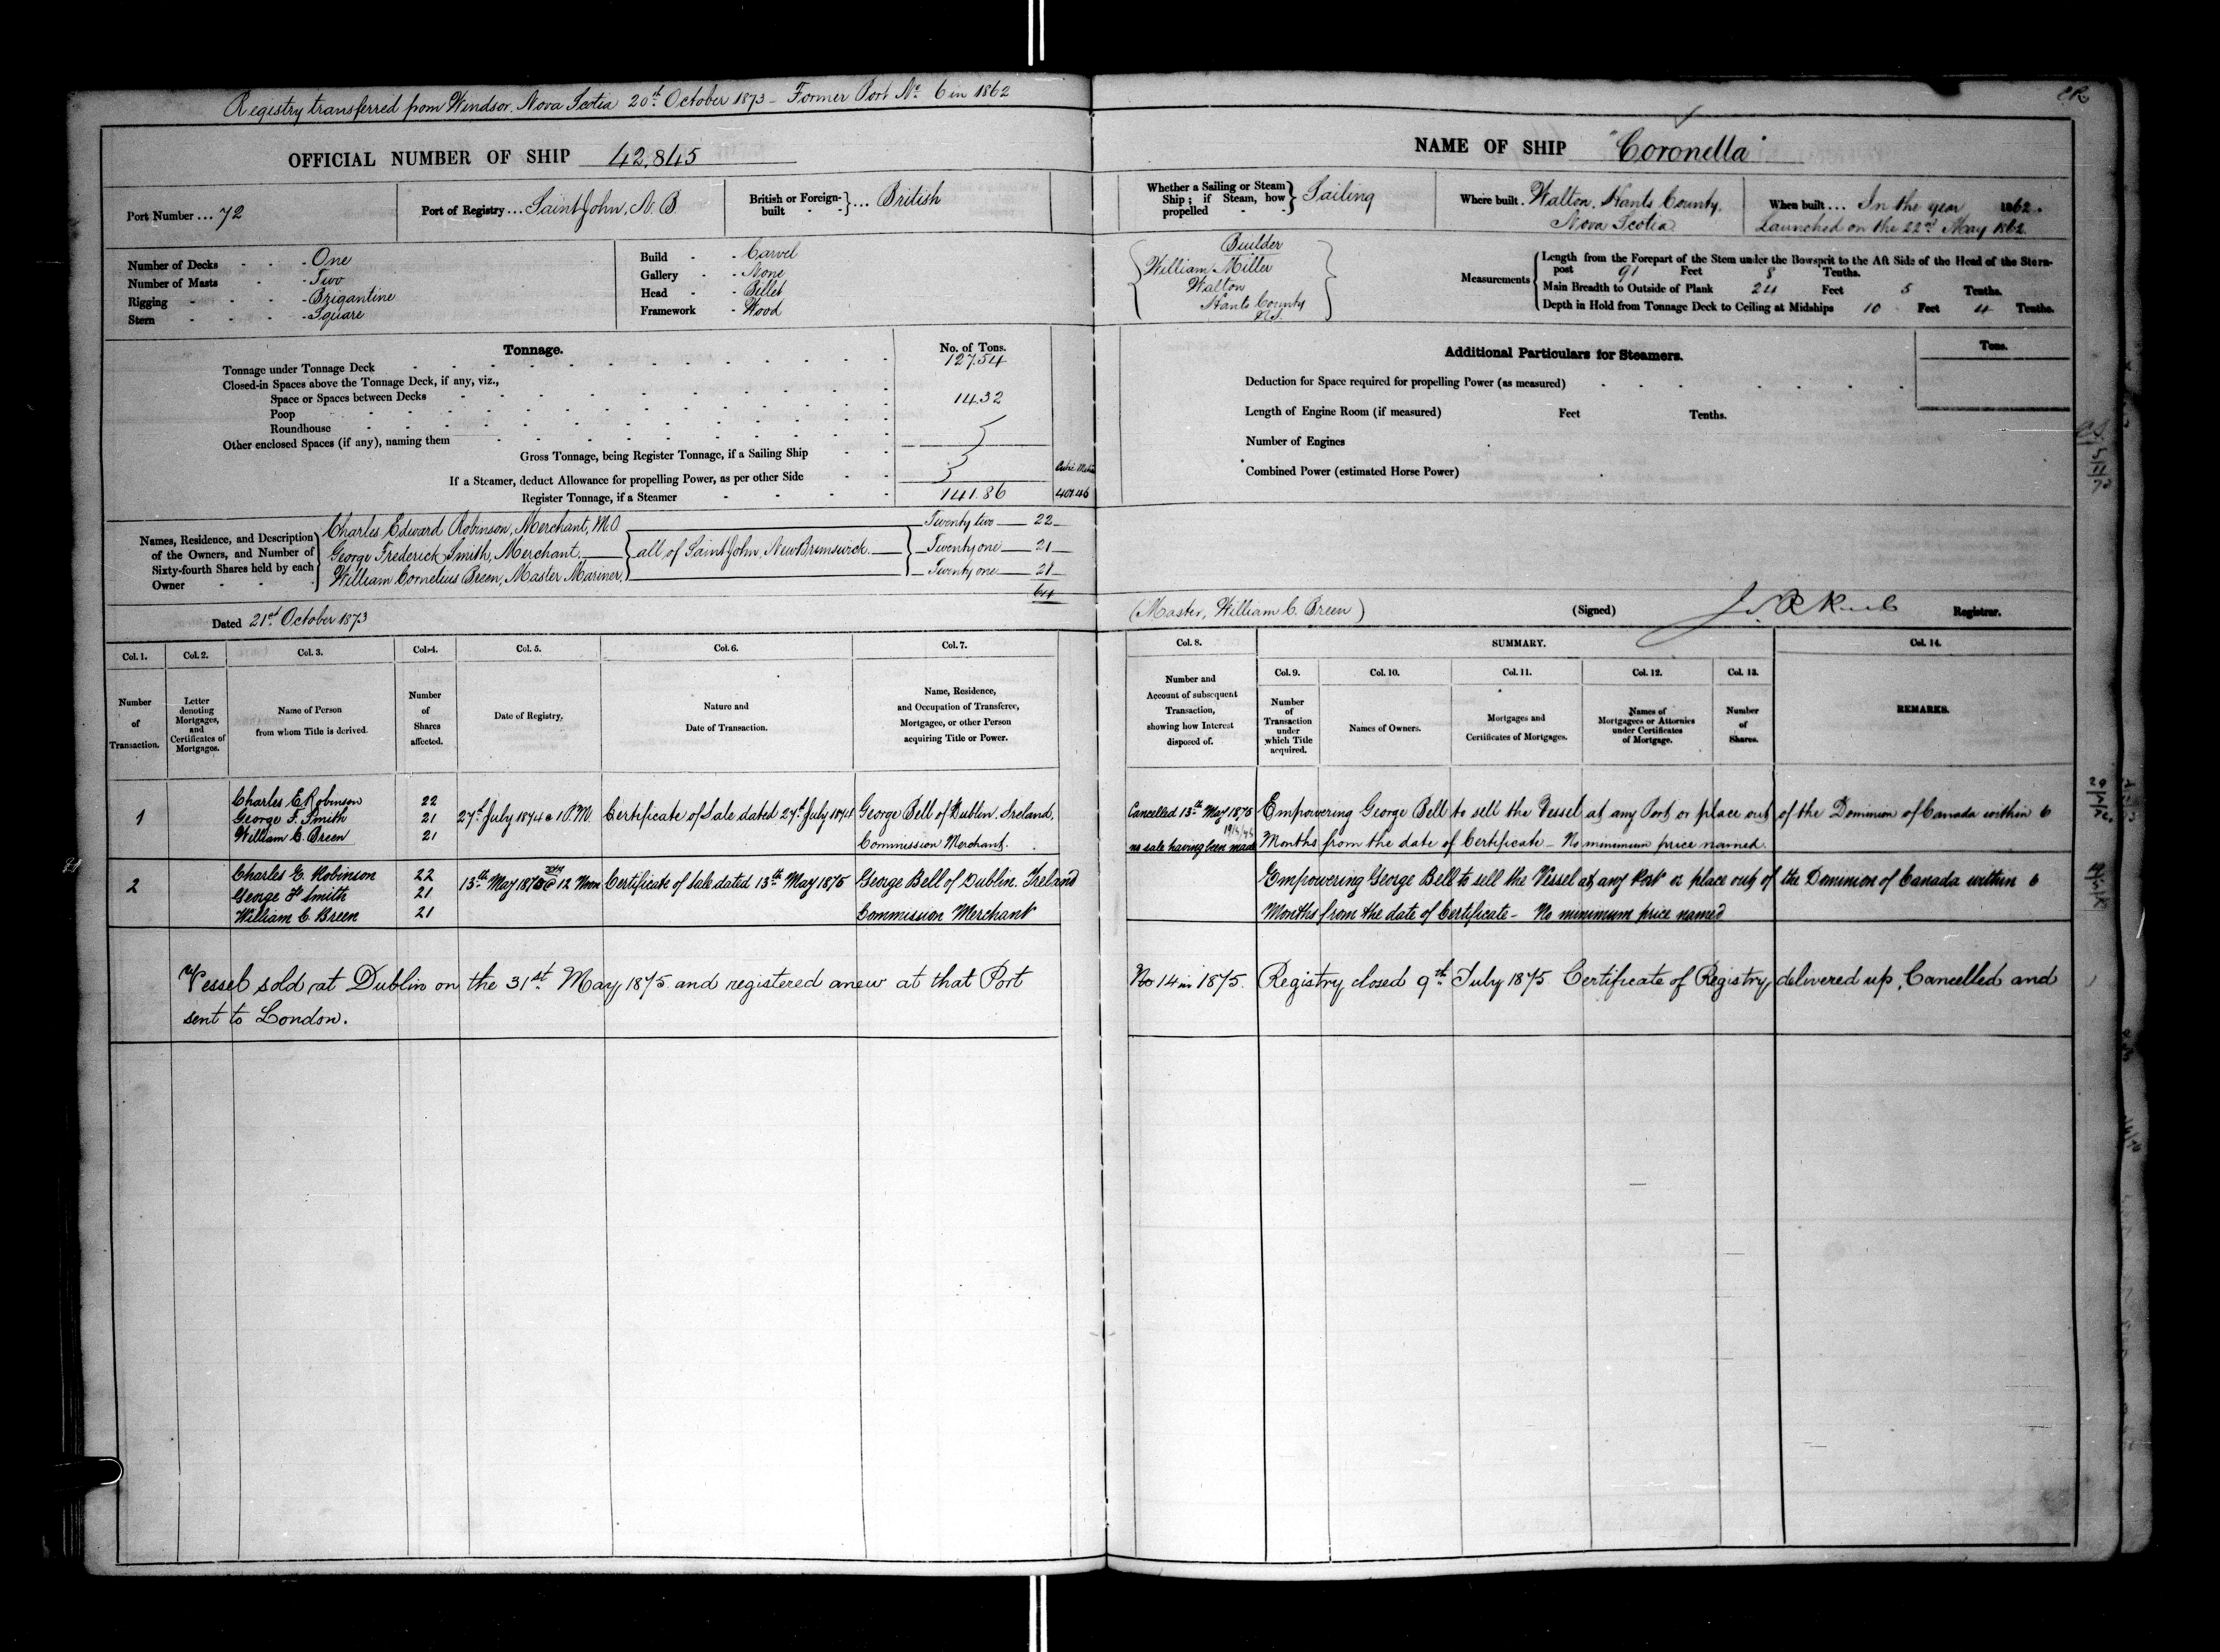 Registry transferred from Windsor, Nova Scotia 20th October 1873 - Former Port No. 6 in 1862
OFFICIAL NUMBER OF SHIP 42,845
Port Number ... 72
Port of Registry ... Saint John, N.B.
British or Foreign-built ... British
Number of Decks - One
Number of Masts - Two
Rigging - Brigantine
Stern - Square
Build - Carvel
Gallery - None
Head - Billet
Framework - Wood
Tonnage.
No. of Tons.
Tonnage under Tonnage Deck 127.54
Closed-in Spaces above the Tonnage Deck, if any, viz.,
Space or Spaces between Decks 14.32
Poop
Roundhouse
Other enclosed Spaces (if any), naming them
Gross Tonnage, being Register Tonnage, if a Sailing Ship
If a Steamer, deduct Allowance for propelling Power, as per other Side
Register Tonnage, if a Steamer 141.86
Names, Residence, and Description of the Owners, and Number of Sixty-fourth Shares held by each Owner
Charles Edward Robinson, Merchant, M.O. Twenty two 22
George Frederick Smith, Merchant. all of Saint John, New Brunswick Twenty one 21
William Cornelius Breen, Master Mariner, Twenty one 21
64
Dated 21st October 1873
Col. 1. Col. 2. Col. 3. Col. 4. Col. 5. Col. 6. Col. 7.
Number of Transaction.
Letter denoting Mortgages, and Certificates of Mortgages.
Name of Person from whom Title is derived.
Number of Shares affected.
Date of Registry.
Nature and Date of Transaction.
Name, Residence, and Occupation of Transferee, Mortgagee, or other Person acquiring Title or Power.
1
Charles E Robinson 22
George F. Smith 21
William C. Breen 21
27th July 1874 @ 1 P.M. Certificate of Sale dated 27th July 1874 George Bell of Dublin, Ireland,
Commission Merchant.
2
Charles E. Robinson 22
George F Smith 21
William C Breen 21
13th May 1875 @ 12 Noon Certificate of Sale dated 13th May 1875 George Bell of Dublin. Ireland
Commission Merchant
Vessel sold at Dublin on the 31st May 1875 and registered anew at that Port
sent to London.
NAME OF SHIP "Coronella"
Whether a Sailing or Steam Ship; if Steam, how propelled Sailing
Where built. Walton, Hants County,
Nova Scotia
When built ... In the year 1862.
Launched on the 22nd May 1862
Builder
William Miller
Walton
Hants County
N.S.
Measurements
Length from the Forepart of the Stem under the Bowsprit to the Aft Side of the Head of the Stern-
post 91 Feet 8 Tenths.
Main Breadth to Outside of Plank 24 Feet 5 Tenths.
Depth in Hold from Tonnage Deck to Ceiling at Midships 10 Feet 4 Tenths.
Additional Particulars for Steamers.
Tons.
Deduction for Space required for propelling Power (as measured)
Length of Engine Room (if measured) Feet Tenths.
Number of Engines
Combined Power (estimated Horse Power)
(Master, William C. Breen)
(Signed) Registrar.
Col. 8. SUMMARY. Col. 14.
Col. 9. Col. 10. Col. 11. Col. 12. Col. 13.
Number and Account of subsequent Transaction, showing how Interest disposed of.
Number of Transaction under which Title acquired.
Names of Owners.
Mortgages and Certificates of Mortgages.
Names of Mortgagees or Attornies under Certificates of Mortgage.
Number of Shares.
REMARKS.
Cancelled 13th May 1875 Empowering George Bell to sell the Vessel at any Port or place out of the Dominion of Canada within 6
no sale having been made Months from the date of Certificate - No minimum price named.
Empowering George Bell to sell the Vessel at any Port or place out of the Dominion of Canada within 6
Months from the date of Certificate - No minimum price named
No 14 in 1875. Registry closed 9th July 1875 Certificate of Registry delivered up, Cancelled and